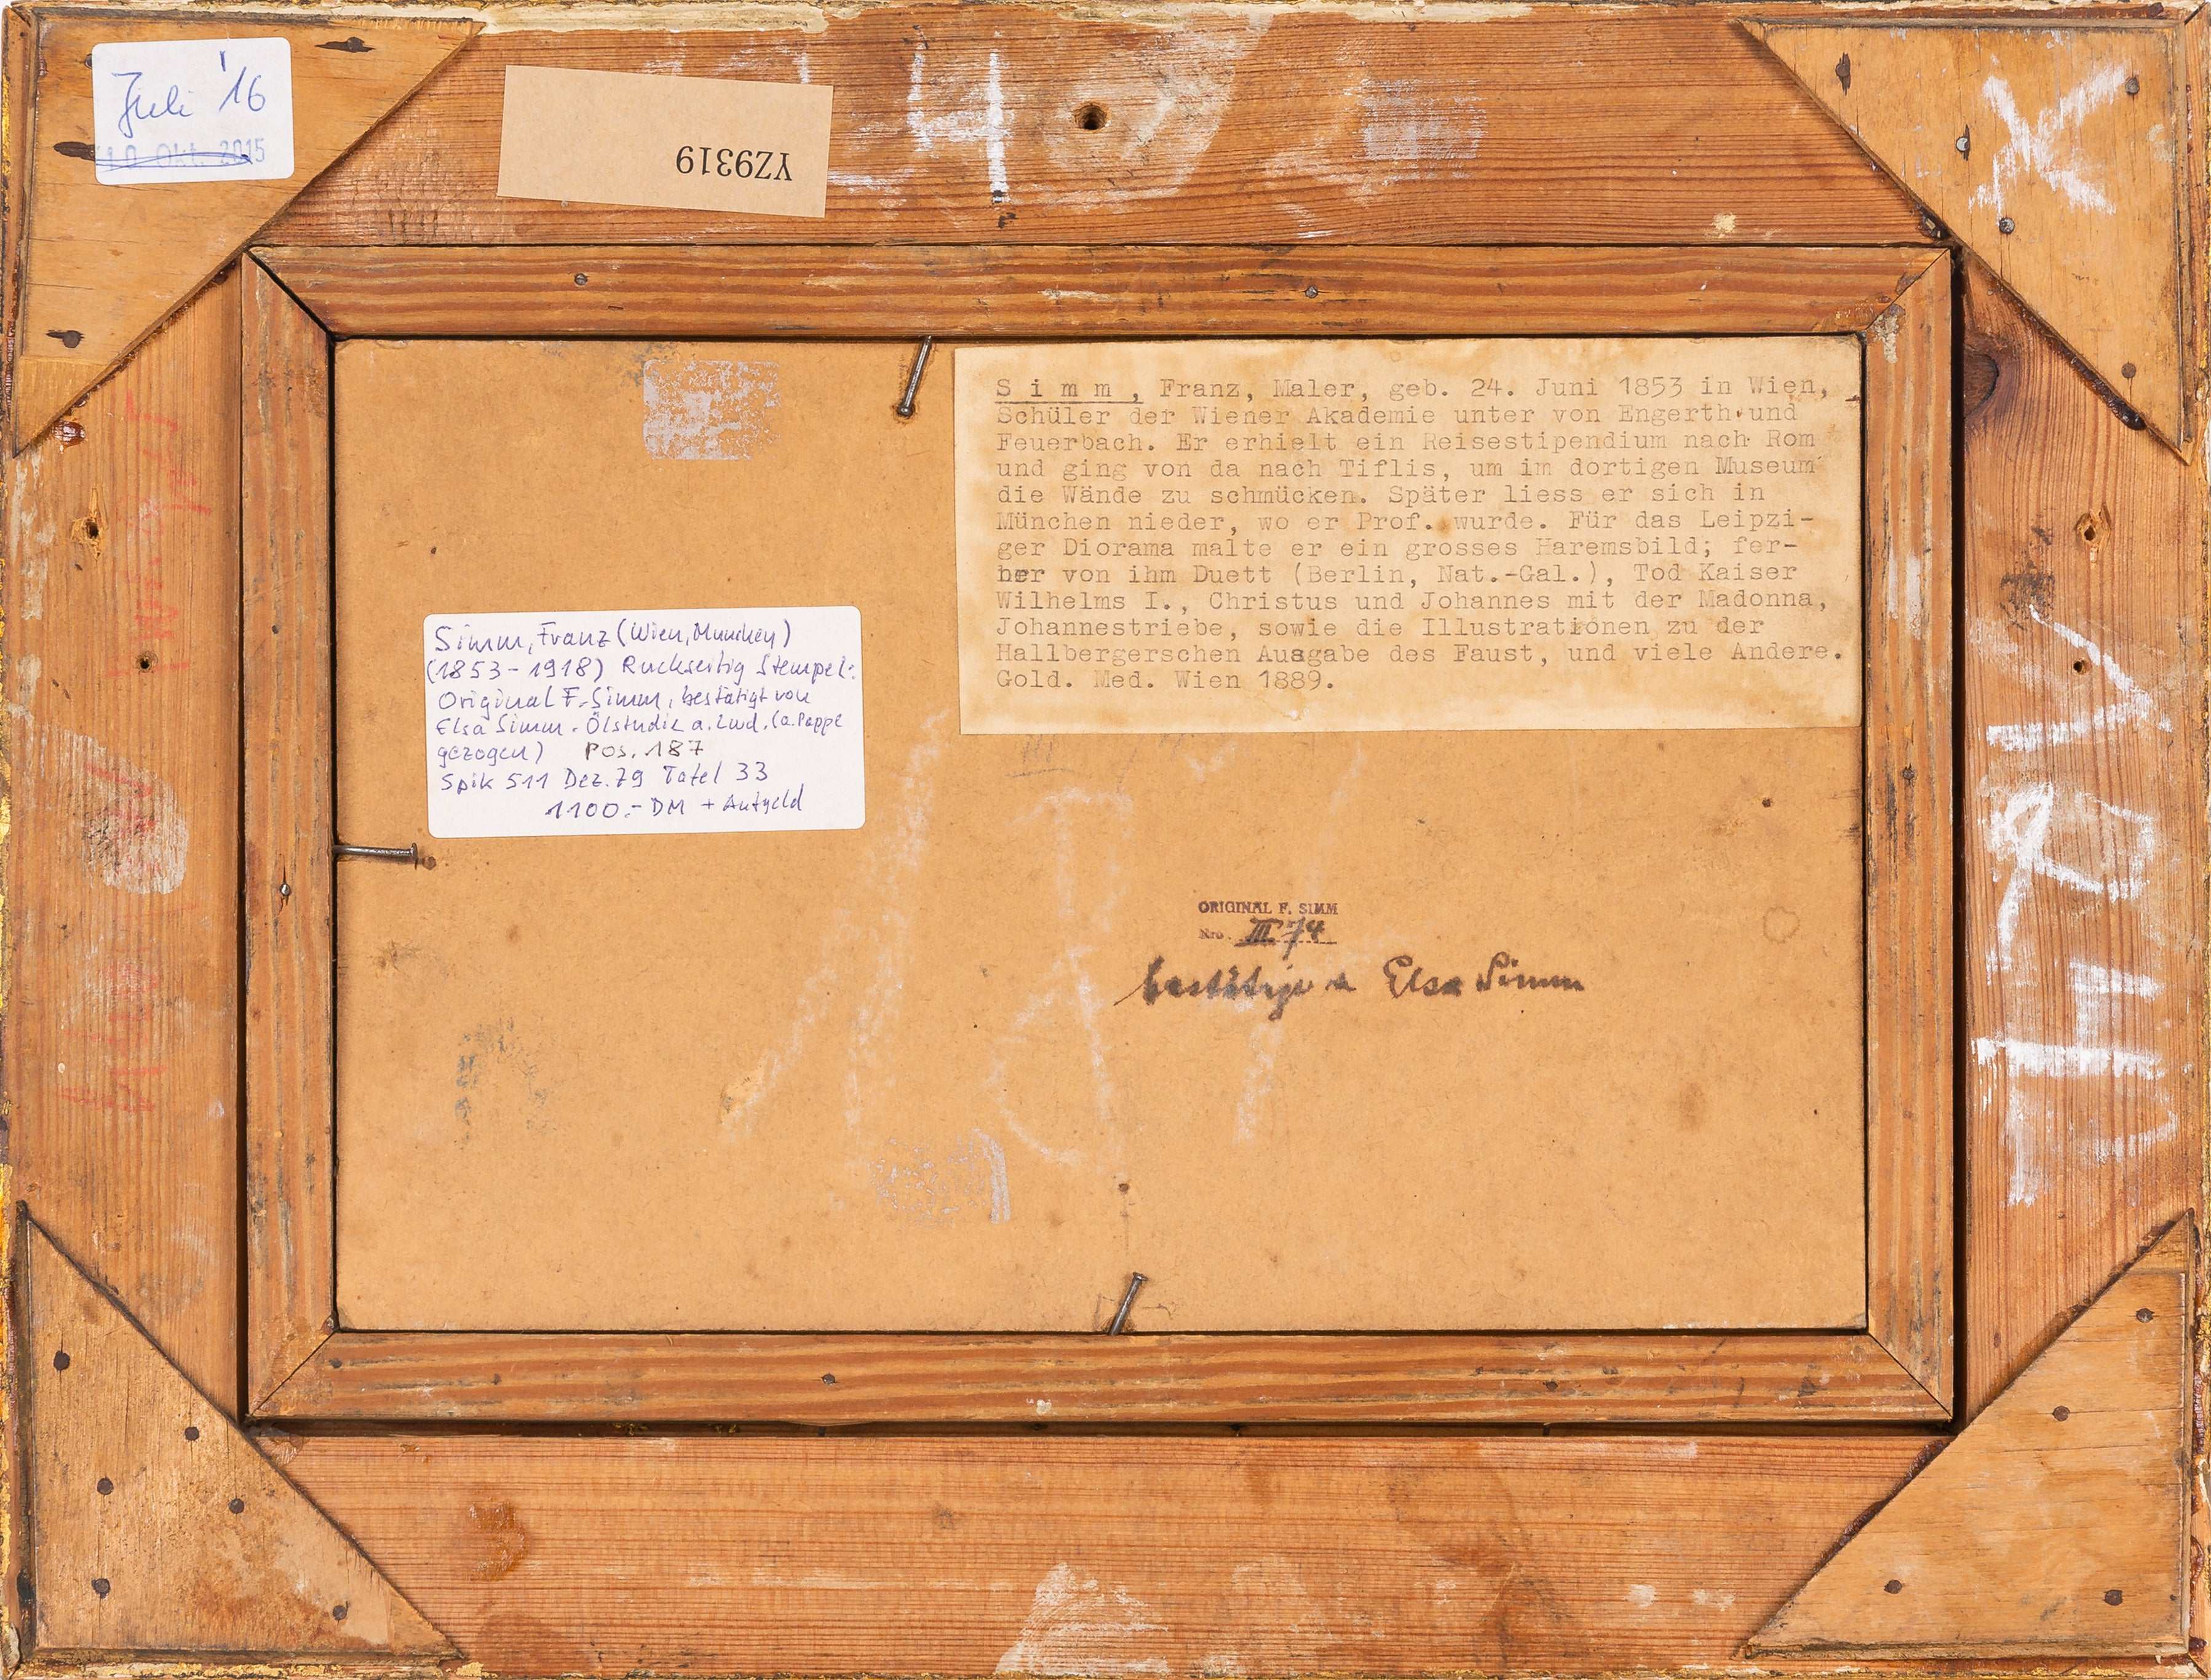 Juli '16
10. Okt. 2015
YZ9319
4
X
Simm, Franz, Maler, geb. 24. Juni 1853 in Wien,
Schüler der Wiener Akademie unter von Engerth und
Feuerbach. Er erhielt ein Reisestipendium nach Rom
und ging von da nach Tiflis, um im dortigen Museum
die Wände zu schmücken. Später liess er sich in
München nieder, wo er Prof. wurde. Für das Leipzi-
ger Diorama malte er ein grosses Haremsbild; fer-
ner von ihm Duett (Berlin, Nat.-Gal.), Tod Kaiser
Wilhelms I., Christus und Johannes mit der Madonna,
Johannestriebe, sowie die Illustrationen zu der
Hallbergerschen Ausgabe des Faust, und viele Andere.
Gold. Med. Wien 1889.
Simm, Franz (Wien, München)
(1853-1918) Rückseitig Stempel:
Original F. Simm, bestätigt von
Elsa Simm. Ölstudie a. Lwd. (a. Pappe
gezogen) Pos. 187
Spik 511 Dez. 79 Tafel 33
1100.- DM + Aufgeld
ORIGINAL F. SIMM
Nro. III 74
Elsa Simm